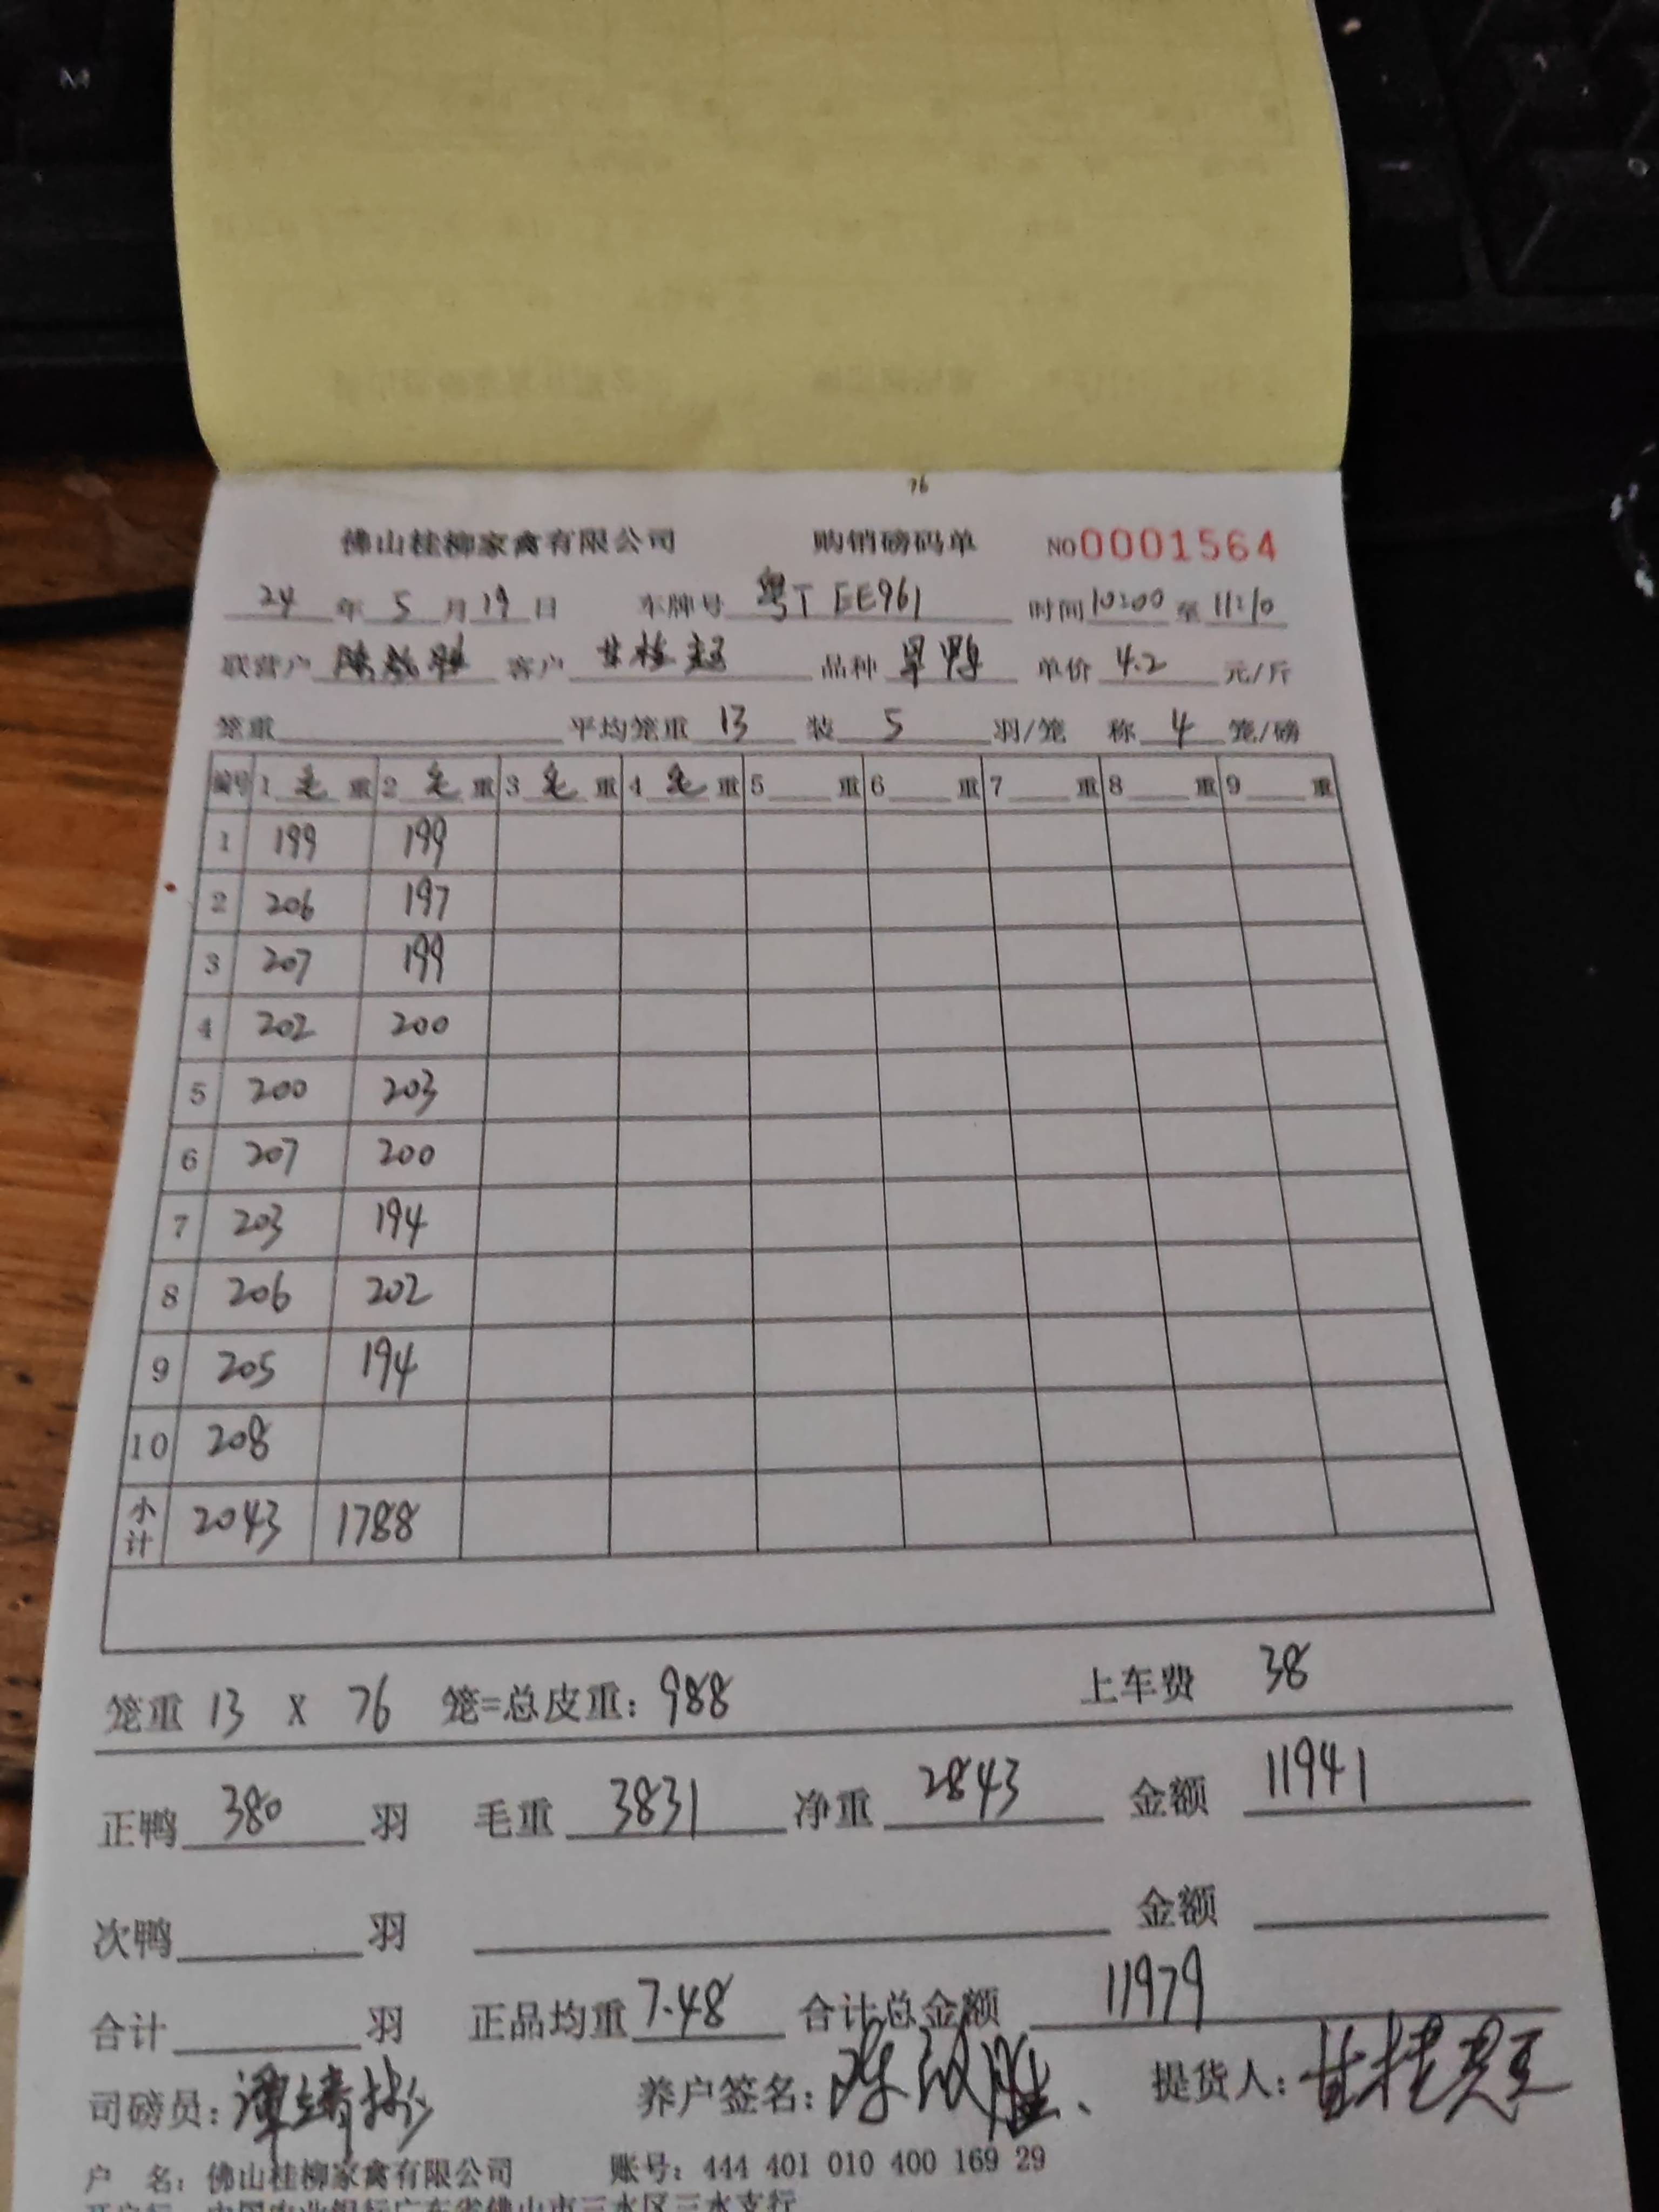 76
佛山桂柳家禽有限公司 购销磅码单 NO0001564
24 年 5 月 19 日 车牌号 粤T EE961 时间 10:00 至 11:10
联营户 陈 胜 客户 甘桂超 品种 旱鸭 单价 4.2 元/斤
笼重 平均笼重 13 装 5 羽/笼 称 4 笼/磅
编号 1 毛 重 2 毛 重 3 毛 重 4 毛 重 5 重 6 重 7 重 8 重 9 重
1 199 199
2 206 197
3 207 199
4 202 200
5 200 203
6 207 200
7 203 194
8 206 202
9 205 194
10 208
小计 2043 1788
笼重 13 X 76 笼=总皮重: 988 上车费 38
正鸭 380 羽 毛重 3831 净重 2843 金额 11941
次鸭 羽 金额
合计 羽 正品均重 7.48 合计总金额 11979
司磅员: 谭靖彬 养户签名: 陈 胜 提货人: 甘桂超
户 名: 佛山桂柳家禽有限公司 账号: 444 401 010 400 169 29
开户行: 中国农业银行广东省佛山市三水区三水支行